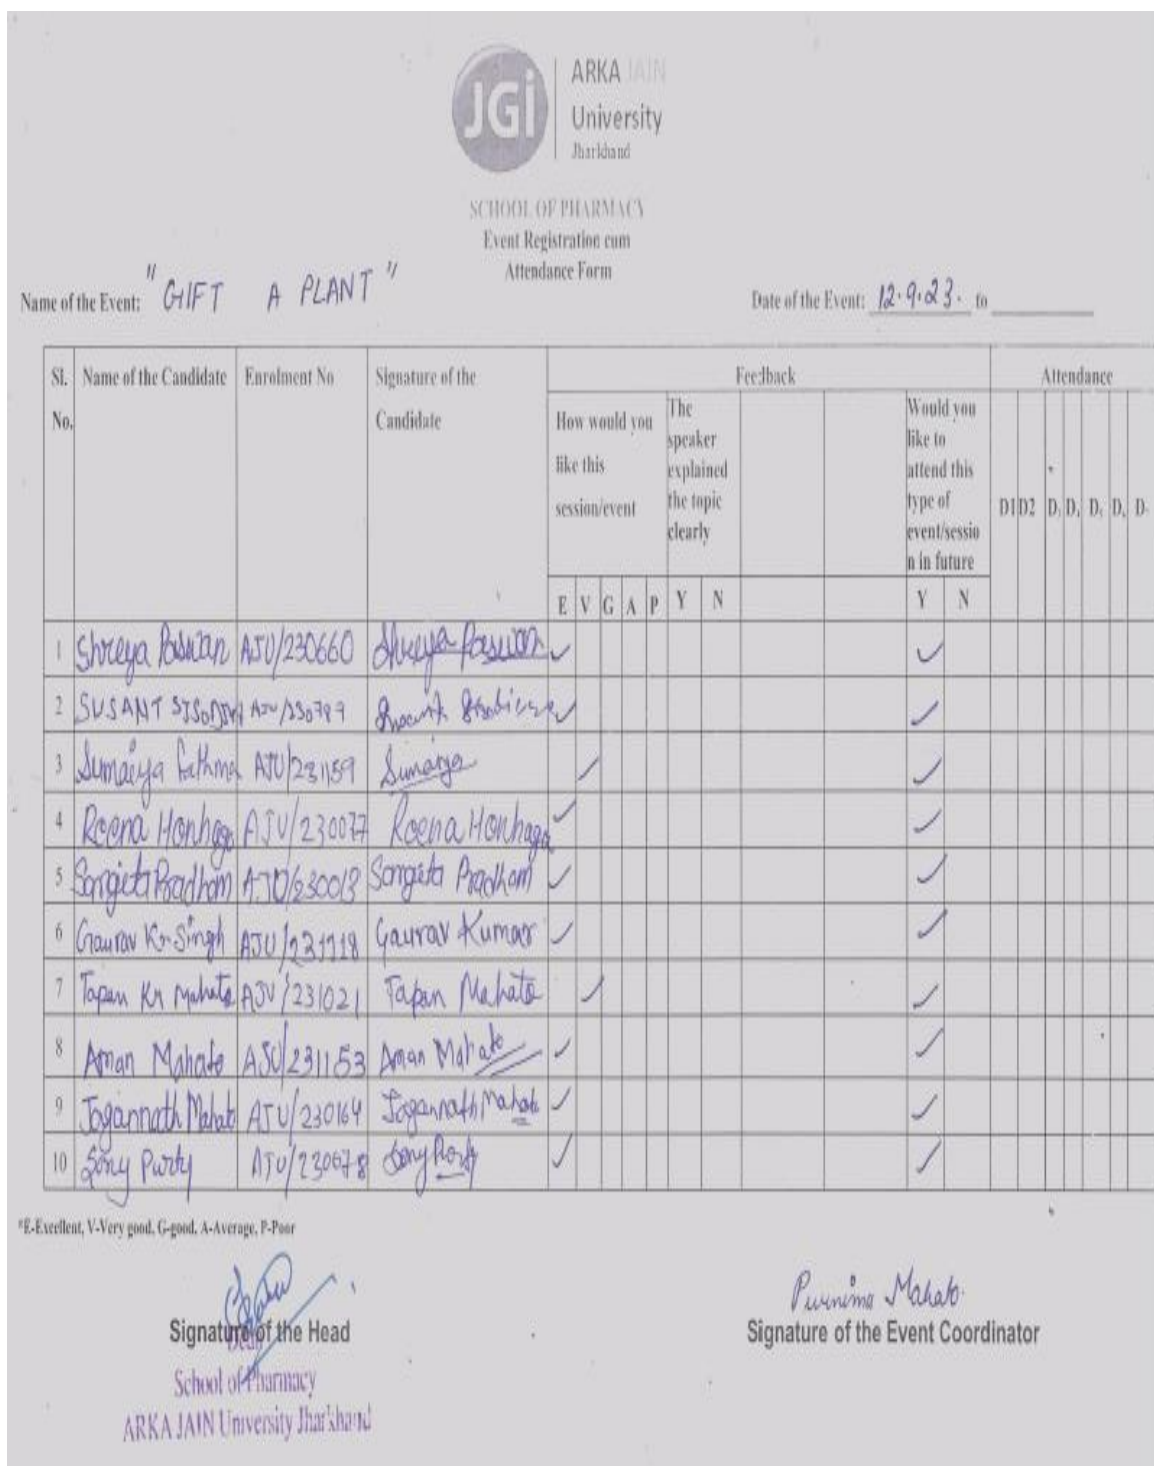 JGi
ARKA JAIN
University
Jharkhand
SCHOOL OF PHARMACY
Event Registration cum
Attendance Form
Name of the Event: "GIFT A PLANT"
Date of the Event: 12.9.23. to
Sl. No. Name of the Candidate Enrolment No Signature of the Candidate Feedback Attendance
How would you like this session/event The speaker explained the topic clearly Would you like to attend this type of event/session in future D1 D2 D. D. D. D. D-
E V G A P Y N Y N
1 Shreya Paswan AJU/230660 Shreya Paswan ✓ ✓
2 SUSANT AJU/230789 ✓ ✓
3 Sumaiya Fathma AJU/231159 Sumaiya ✓ ✓
4 Reena Honhaga AJU/230077 Reena Honhaga ✓ ✓
5 Sangita Pradhan AJU/230013 Sangita Pradhan ✓ ✓
6 Gaurav Kr. Singh AJU/231118 Gaurav Kumar ✓ ✓
7 Tapan Kr Mahato AJU/231021 Tapan Mahato ✓ ✓
8 Aman Mahato AJU/231153 Aman Mahato ✓ ✓
9 Jagannath Mahato AJU/230164 Jagannath Mahato ✓ ✓
10 Sony Purty AJU/230078 Sony Purty ✓ ✓
*E-Excellent, V-Very good, G-good, A-Average, P-Poor
Purnima Mahato
Signature of the Head
Signature of the Event Coordinator
Dean
School of Pharmacy
ARKA JAIN University Jharkhand